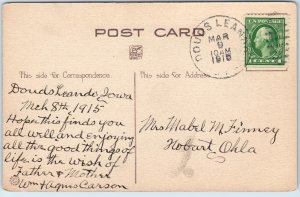 POST CARD
This side for Correspondence.
This side for Address.
DOUDS LEANDO
MAR
9
10AM
1915
Douds Leando, Iowa
Mch 8th, 1915
Hope this finds you
all well and enjoying
all the good things of
life is the wish of
Father & Mother
Wm & Agnes Carson
Mrs Mabel McFinney
Hobart, Okla